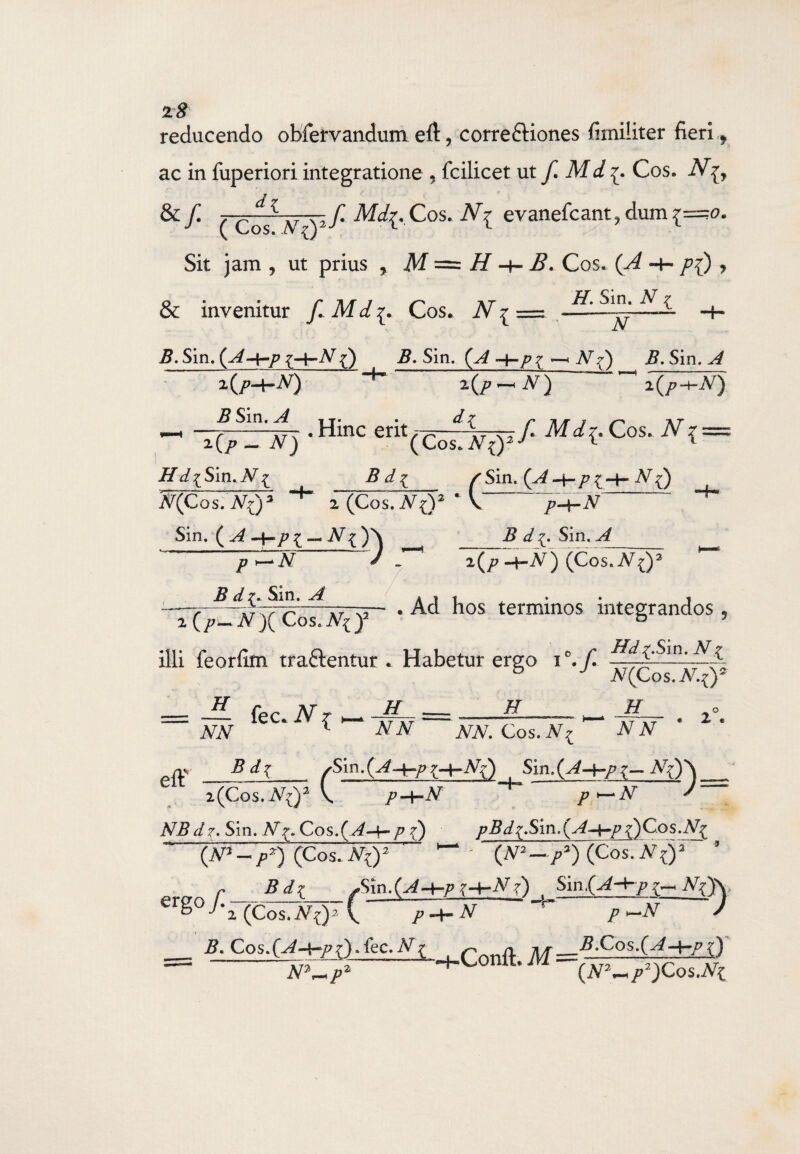 28
reducendo obſervandum eſt, correctiones ſimiliter fieri,
ac in ſuperiori integratione, ſcilicet ut ſ. M d ζ. Cos. Nζ,
& ſ. dζ / (Cos. Nζ)² ſ. Mdζ. Cos. Nζ evaneſcant, dum ζ=0.
Sit jam, ut prius, M = H + B. Cos. (A + pζ),
& invenitur ſ. M d ζ. Cos. Nζ = H. Sin. N ζ / N +
B. Sin. (A+p ζ+N ζ) / 2(p+N) + B. Sin. (A +p ζ — N ζ) / 2(p — N) — B. Sin. A / 2(p+N)
— B Sin. A / 2(p — N) . Hinc erit dζ / (Cos. Nζ)² ſ. M dζ. Cos. N ζ =
H d ζ Sin. N ζ / N(Cos. Nζ)² + B d ζ / 2 (Cos. Nζ)² . ( Sin. (A+p ζ+ N ζ) / p+N +
Sin. ( A +p ζ — N ζ ) / p — N ) — B d ζ. Sin. A / 2(p +N) (Cos. Nζ)² —
B d ζ. Sin. A / 2 (p—N)( Cos. Nζ )² . Ad hos terminos integrandos,
illi ſeorſim tractentur. Habetur ergo 1°. ſ. Hd ζ.Sin. N ζ / N(Cos. N.ζ)²
= H / NN ſec. N ζ — H / NN = H / NN. Cos. N ζ — H / NN . 2°.
eſt B d ζ / 2(Cos. Nζ)² ( Sin.(A+p ζ+Nζ) / p+N + Sin.(A+p ζ— Nζ) / p — N ) =
NB d ζ. Sin. N ζ. Cos.(A+ p ζ) / (N² — p²) (Cos. Nζ)² — pBdζ.Sin.(A+p ζ)Cos.Nζ / (N² — p²) (Cos. N ζ)² ,
ergo ſ. B d ζ / 2 (Cos. Nζ)² ( Sin.(A+p ζ+N ζ) / p + N + Sin.(A+p ζ— Nζ) / p —N )
= B. Cos.(A+pζ). ſec. N ζ / N²—p² +Conſt. M = B.Cos.(A+p ζ) / (N²—p²)Cos.Nζ